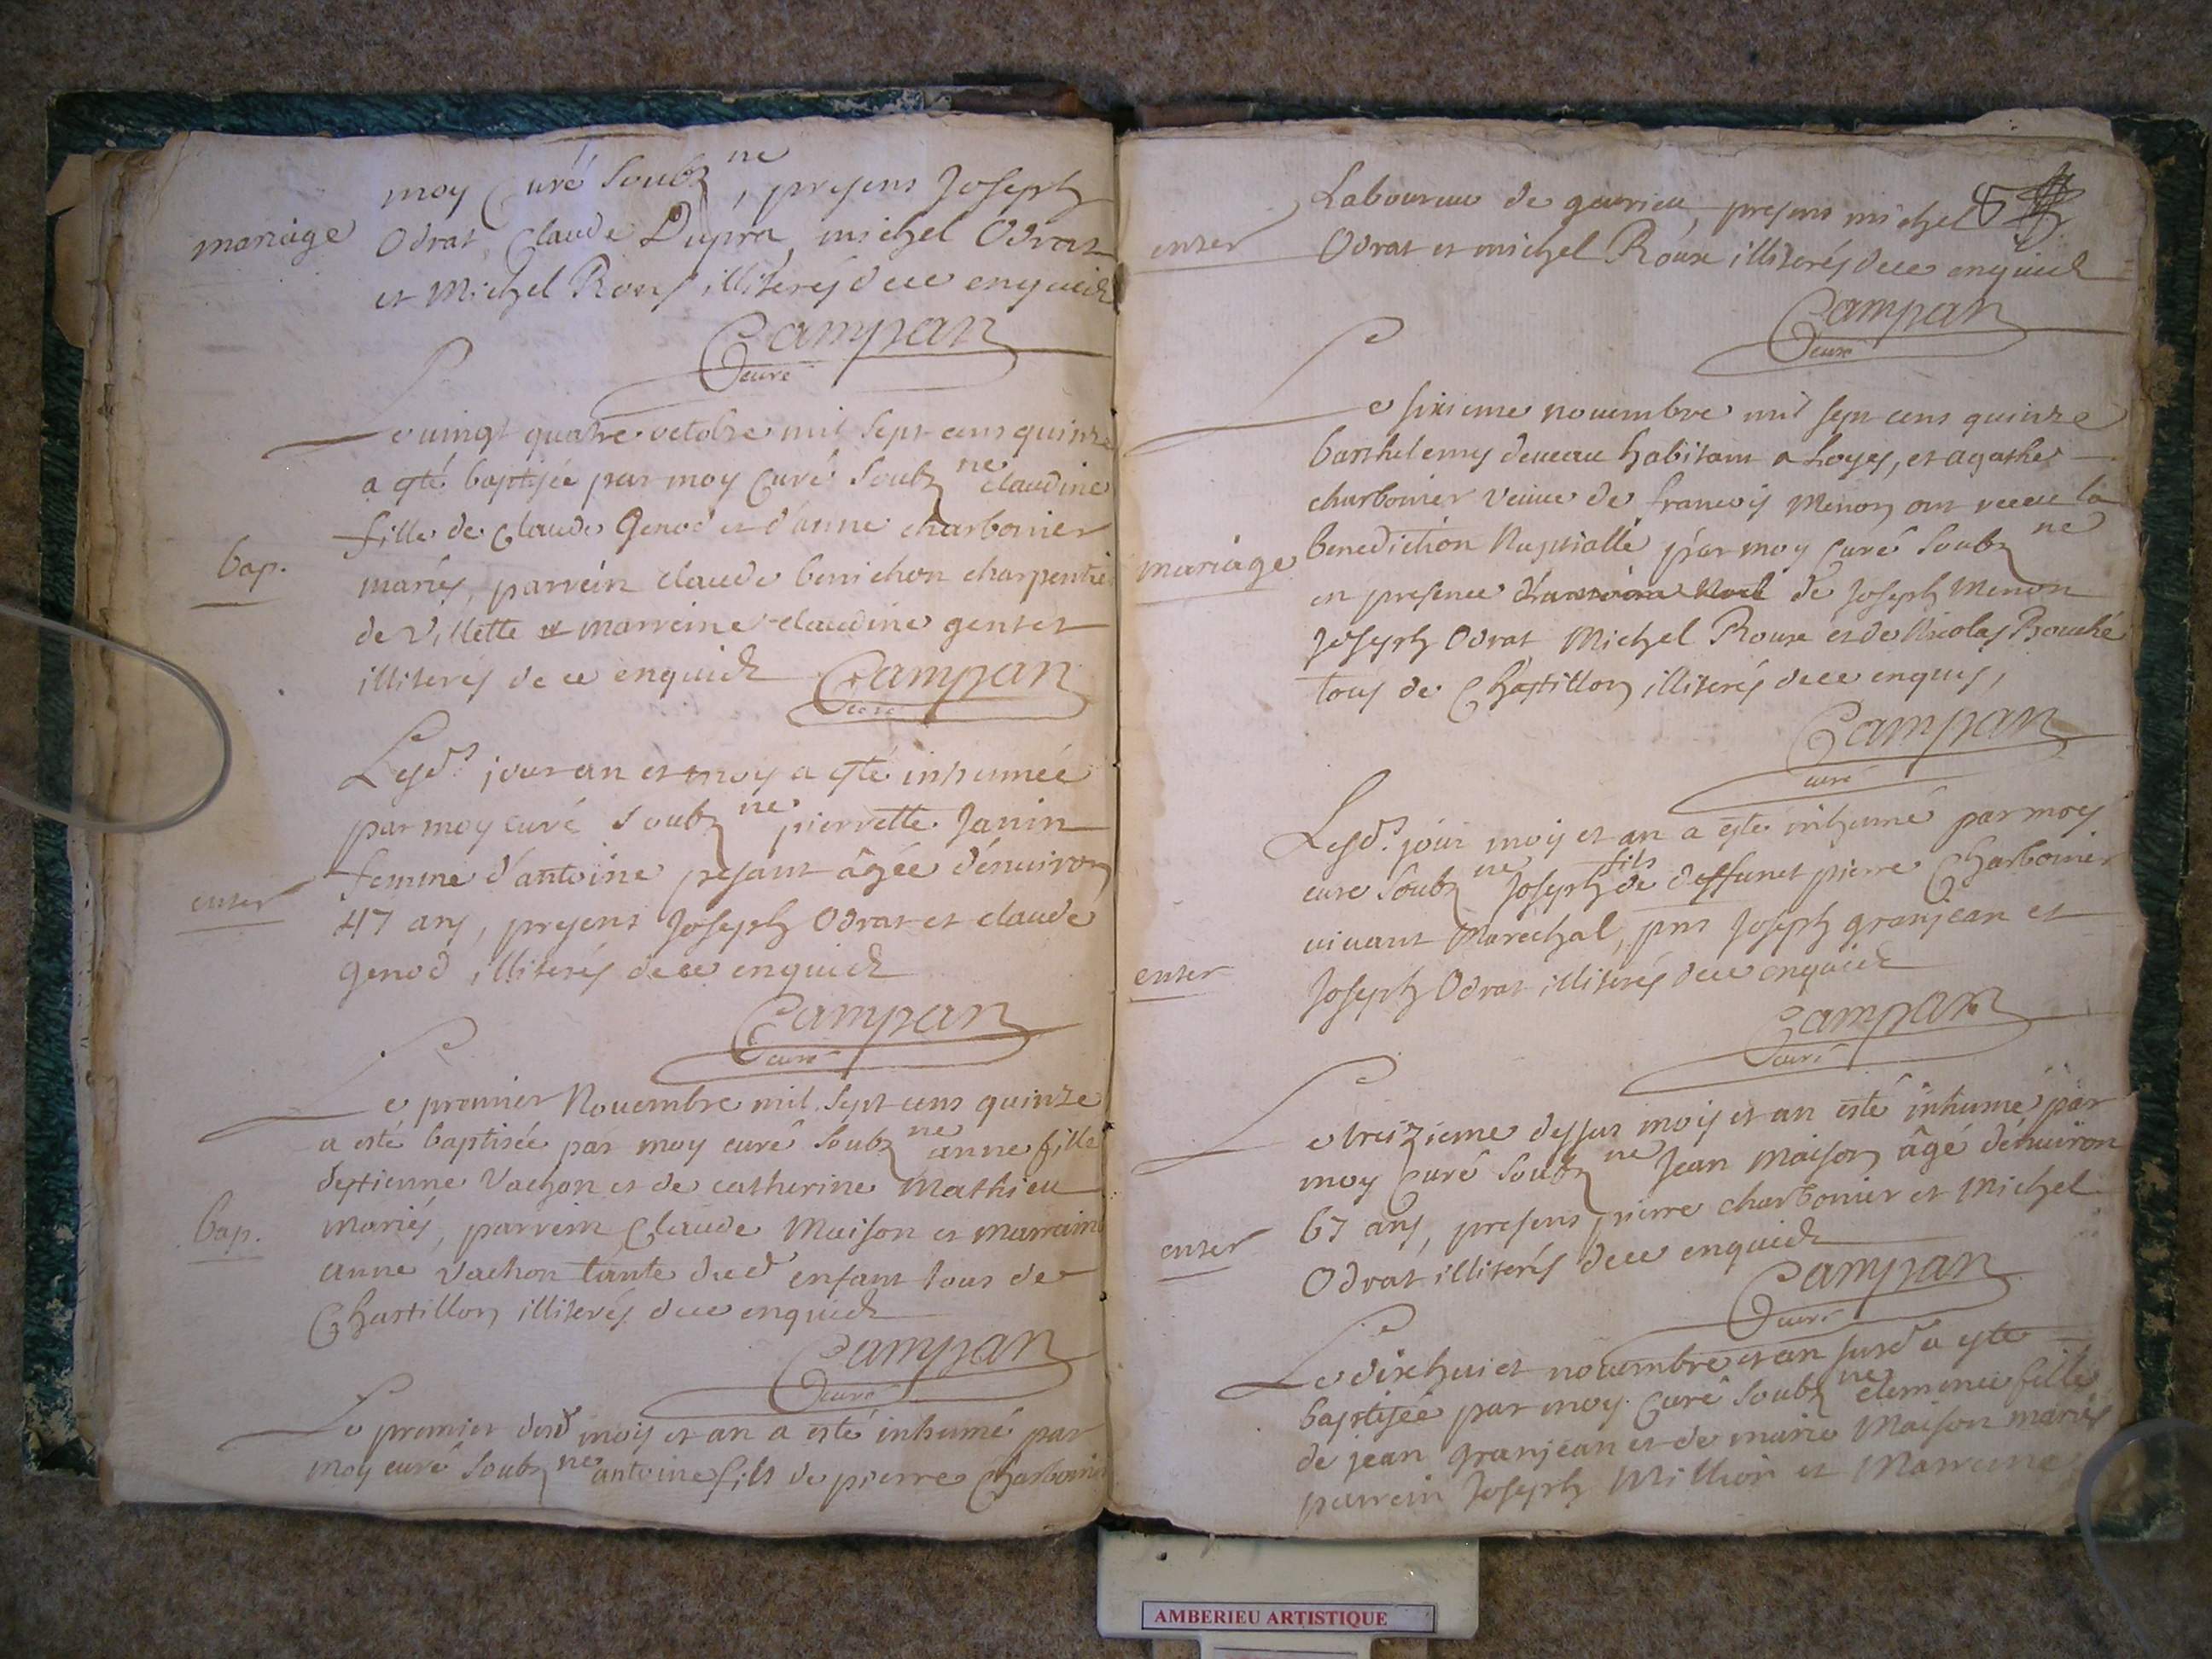 moy Curé Soubz ne, presens Joseph
mariage
Odrat, Claude Dupra, michel Odrat
et Michel Roux illiterés de ce enquich
Campan
curé
Le vingt quatre octobre mil sept cens quinze
a esté baptisée par moy Curé Soubz ne claudine
fille de Claude Genod et d'anne charbonier
bap.
mariés, parrein claude benichon charpentie
de Villette et marreine claudine gentet
illiterés de ce enquich Campan
curé
Lesd. jour an et moy a esté inhumée
par moy curé Soubz ne pierrette Janin
femme d'antoine pesant âgée d'enuiron
enter
47 ans, presens Joseph Odrat et claude
genod illiterés de ce enquich
Campan
curé
Le premier Nouembre mil sept cens quinze
a esté baptisée par moy curé Soubz ne anne fille
d'estienne Vachon et de catherine Mathieu
bap.
mariés, parrein Claude Maison et marraine
anne Vachon tante dud enfant tous de
Chastillon illiterés de ce enquich
Campan
curé
Le premier desd mois et an a esté inhumé par
moy curé Soubz ne antoine fils de pierre Charbonier
Laboureur de presens michel
enter
Odrat et michel Roux illiterés de ce enquich
Campan
curé
Le sixieme nouembre mil sept cens quinze
barthelemy deueau habitant a Loyes, et agathe
charbonier veuue de francois Menon ont receu la
benediction Nuptialle par moy Curé Soubz ne
mariage
en presence de Joseph Menon
Joseph Odrat Michel Roux et de Nicolas Bouché
tous de Chastillon illiterés de ce enquis,
Campan
curé
Lesd. jour moys et an a esté inhumé par moy
curé Soubz ne Joseph fils de deffunct pierre Charbonier
viuant Marechal, pns Joseph granjean et
enter
Joseph Odrat illiterés de ce enquich
Campan
curé
Le treizieme dessus mois et an esté inhumé par
moy Curé Soubz ne Jean Maison âgé d'enuiron
67 ans, presens pierre charbonier et Michel
enter
Odrat illiterés de ce enquich
Campan
curé
Le dixhuict nouembre et an susd a esté
baptisée par moy Curé Soubz ne clemence fille
de jean granjean et de marie Maison mariés
parrein Joseph Million et Marreine
AMBERIEU ARTISTIQUE